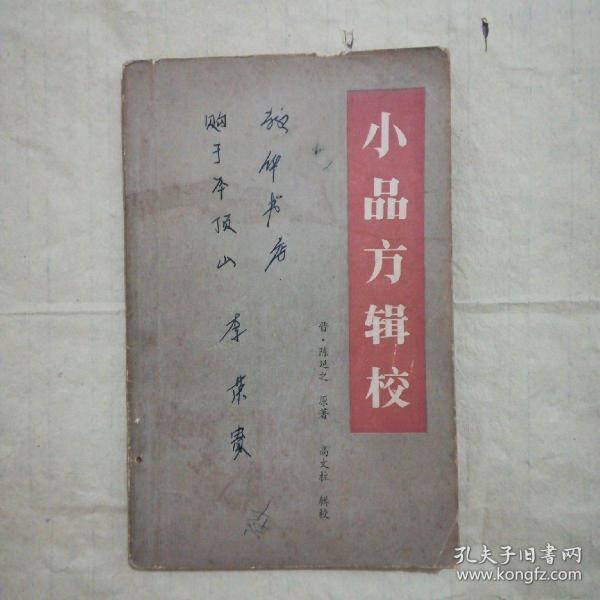 小品方辑校
晋·陈延之 原著 高文柱 辑校
书店
购于平顶山 李荣贵
孔夫子旧书网
www.kongfz.com